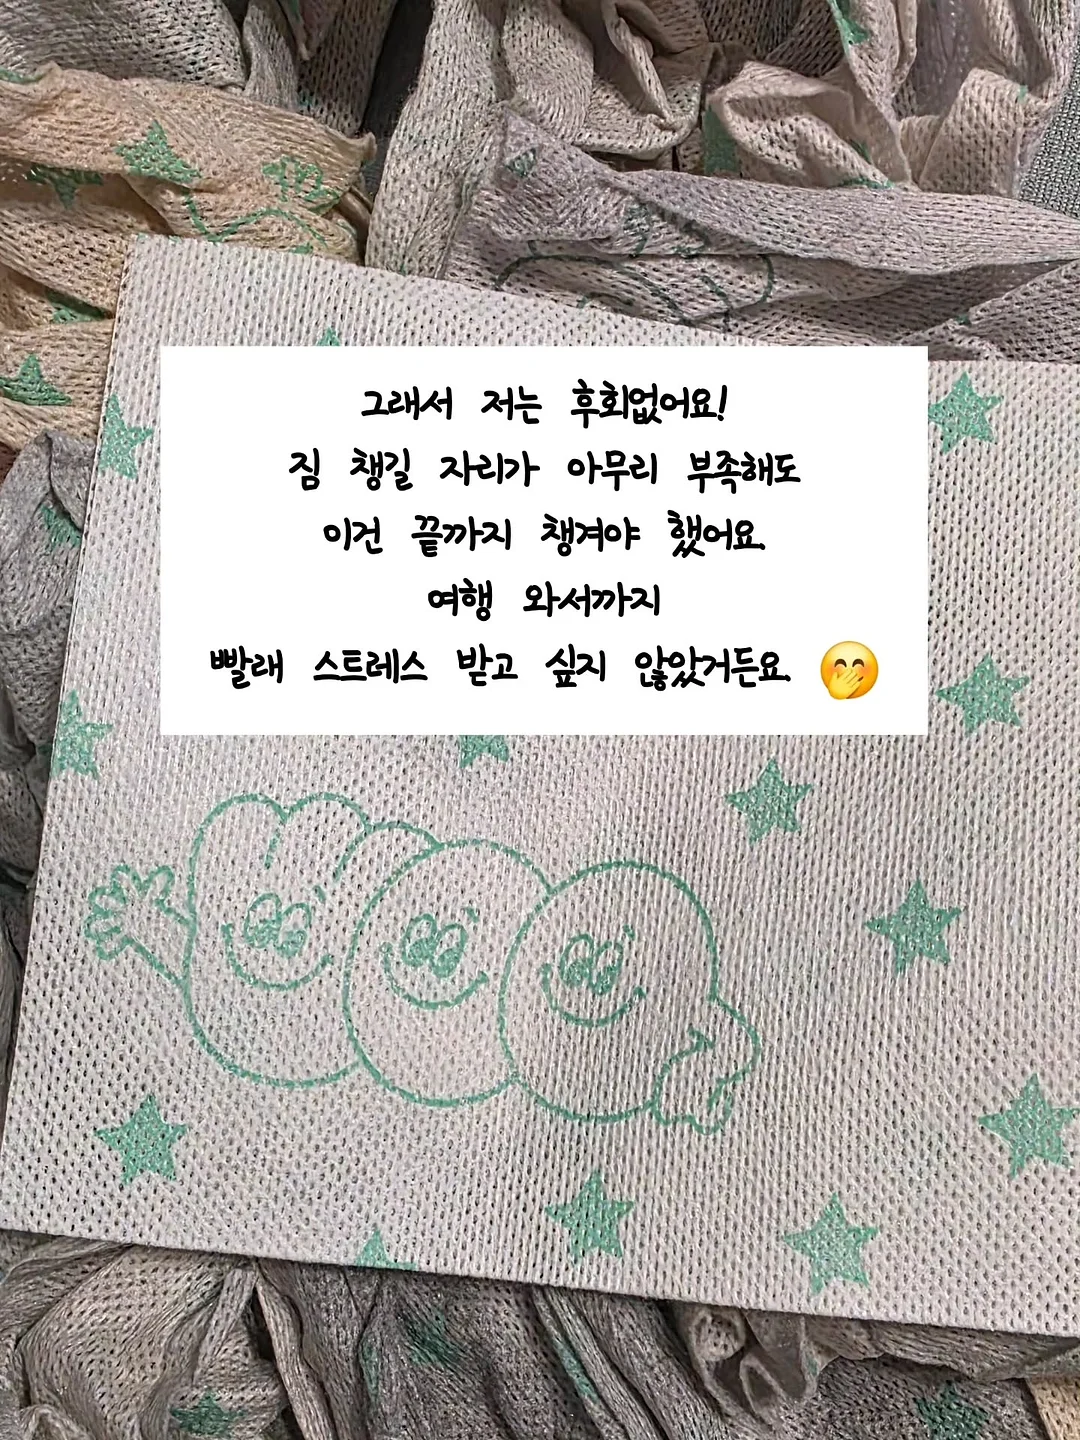 그래서 저는 후회없어요!
짐 챙길 자리가 아무리 부족해도
이건 끝까지 챙겨야 했어요.
여행 와서까지
빨래 스트레스 받고 싶지 않았거든요. 🤭